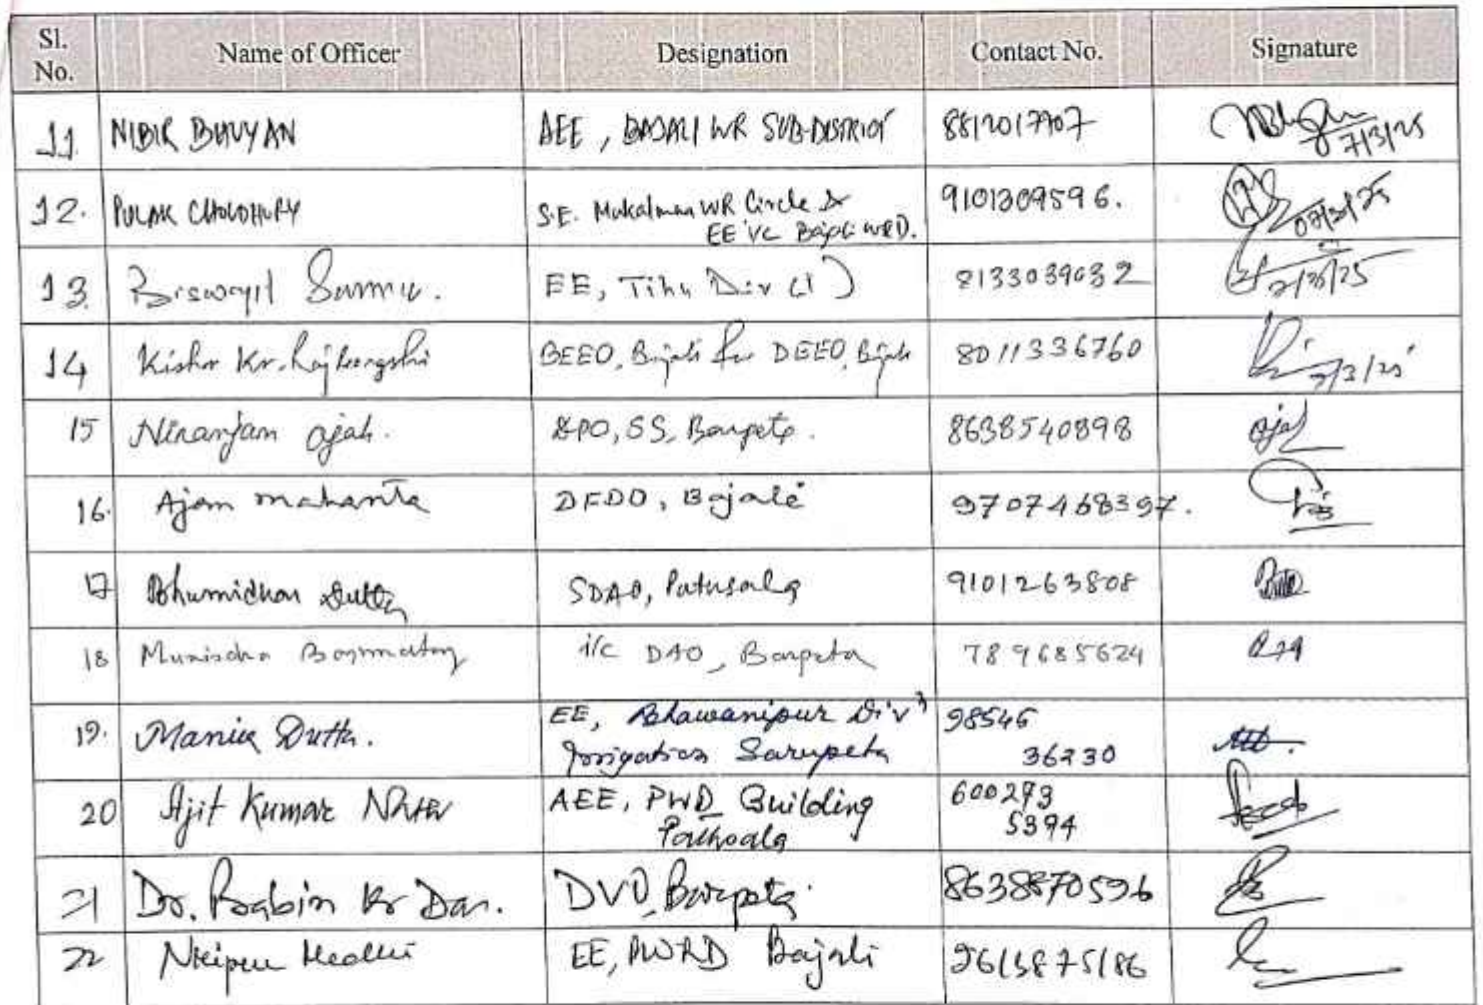 Sl. No. Name of Officer Designation Contact No. Signature
11. NIBIR BHUYAN AEE, BAJALI WR SUB-DISTRICT 8812017707 7/3/25
12. PULAK CHOUDHURY S.E. WR Circle & 9101309596. 07/3/25
EE i/c Bajali WRD.
13. Biswajit Sarma. EE, Tihu Div (I) 8133039032 7/3/25
14 Kishor Kr. Rajbongshi BEEO, Bajali for DEEO, Bajali 8011336760 7/3/25
15 Niranjan Ojah. DPO, SS, Barpeta. 8638540898 Ojah
16. Ajom mahanta DFDO, Bajali 9707468397.
17 Bhumidhar Dutta SDAO, Patasala 9101263808
18 Munindra Basumatary i/c DAO, Barpeta 789685624
19. Manik Dutta. EE, Bhawanipur Div 98546
Irrigation Sarupeta 36230
20 Ajit Kumar Nath AEE, PWD Building 600273
Pathsala 5394
21 Dr. Rabin Kr Das. DVO, Barpeta 8638870596
22 Nripen Medhi EE, PWRD Bajali